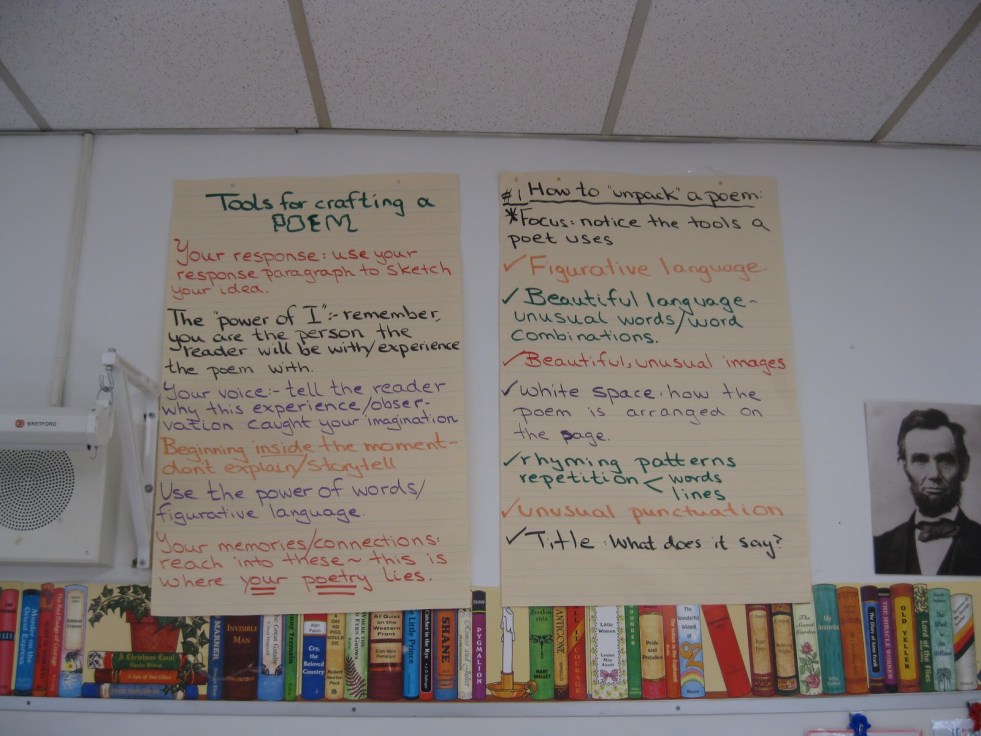 Tools for crafting a
POEM
Your response: use your
response paragraph to sketch
your idea.
The "power of I":- remember,
you are the person the
reader will be with/experience
the poem with.
Your voice:- tell the reader
why this experience/obser-
vation caught your imagination
Beginning inside the moment-
dont explain/storytell
Use the power of words/
figurative language.
Your memories/connections:
reach into these~ this is
where your poetry lies.
#1 How to "unpack" a poem:
*Focus: notice the tools a
poet uses
✓Figurative language
✓Beautiful language-
unusual words/word
combinations.
✓Beautiful, unusual images
✓white space: how the
poem is arranged on
the page.
✓rhyming patterns
repetition < words
lines
✓unusual punctuation
✓Title: What does it say?
BRETFORD
A Christmas Carol
A Tale of Two Cities
MARNER
INVISIBLE
MAN
Cry, the
Beloved
Country
All Quiet
on the
Western
Front
Little Prince
SHANE
PYGMALION
ANTIGONE
Little
Women
Pride
and
Prejudice
The Secret
Garden
THE MIRACLE WORKER
OLD YELLER
Lord of the Flies